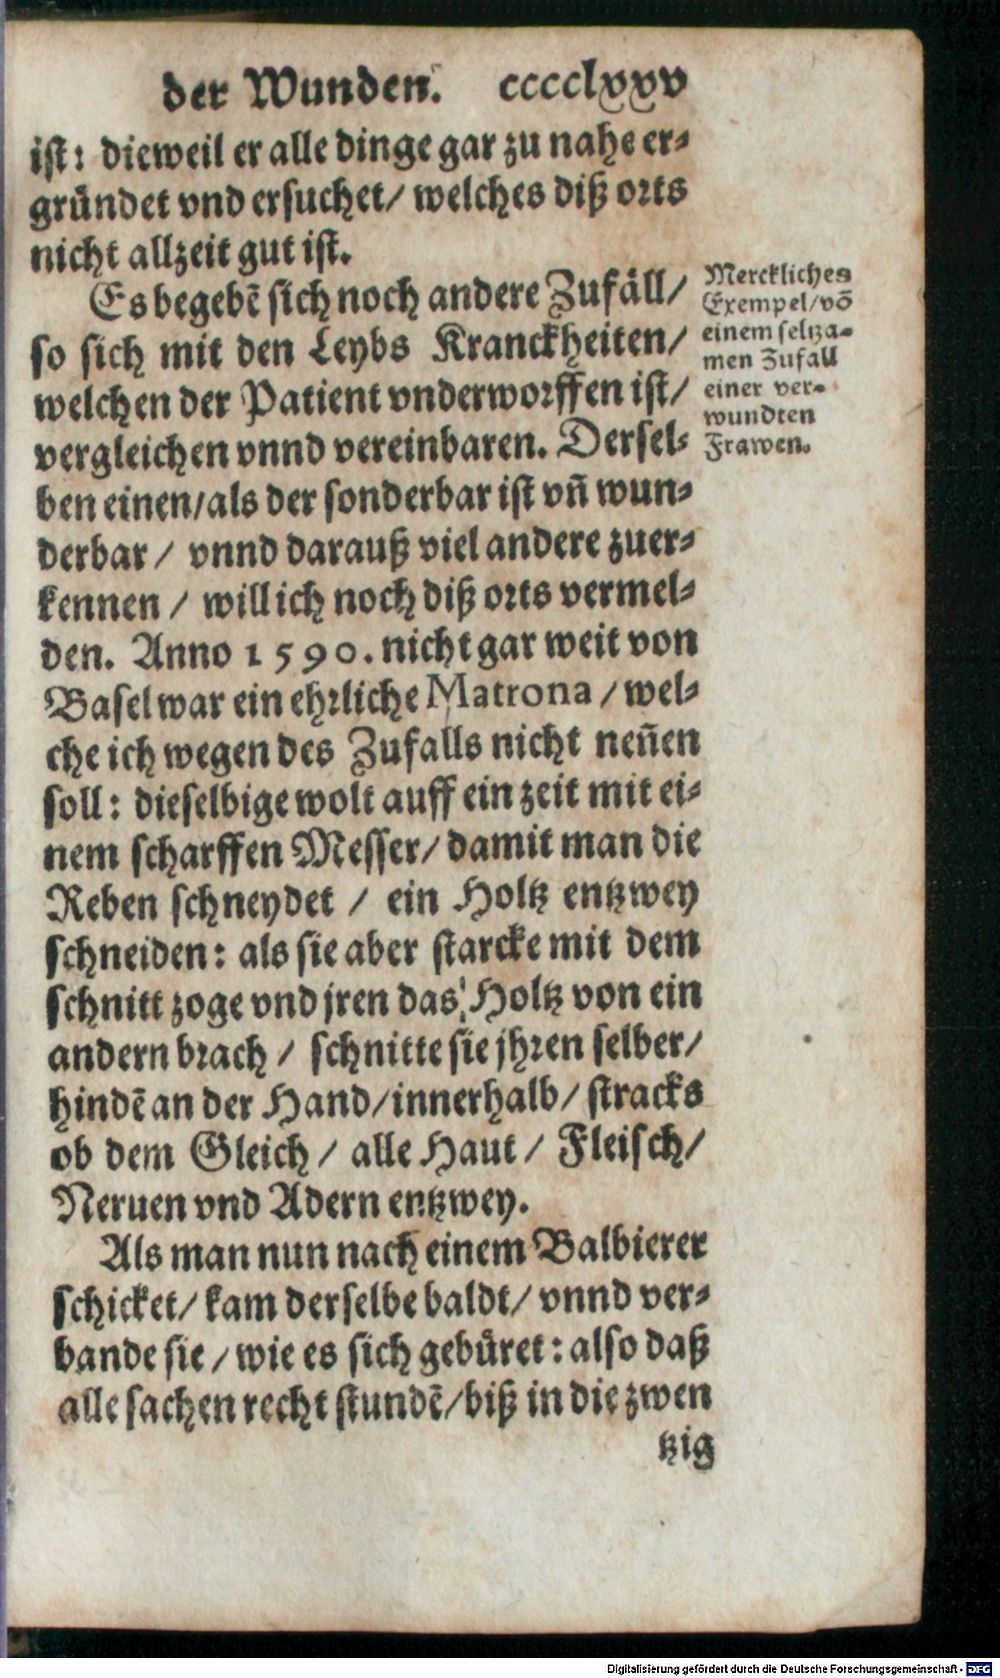 der Wunden. cccclxxv
ist: dieweil er alle dinge gar zu nahe er-
gründet vnd ersuchet/ welches diß orts
nicht allzeit gut ist.
Es begebẽ sich noch andere Zufäll/
so sich mit den Leybs Kranckheiten/
welchen der Patient vnderworffen ist/
vergleichen vnnd vereinbaren. Dersel-
ben einen/als der sonderbar ist vñ wun-
derbar/ vnnd darauß viel andere zuer-
kennen/ will ich noch diß orts vermel-
den. Anno 1590. nicht gar weit von
Basel war ein ehrliche Matrona/wel-
che ich wegen des Zufalls nicht neñen
soll: dieselbige wolt auff ein zeit mit ei-
nem scharffen Messer/damit man die
Reben schneydet/ ein Holtz entzwey
schneiden: als sie aber starcke mit dem
schnitt zoge vnd jren das Holtz von ein
andern brach/ schnitte sie jhren selber/
hindẽ an der Hand/innerhalb/ stracks
ob dem Gleich/ alle Haut/ Fleisch/
Neruen vnd Adern entzwey.
Als man nun nach einem Balbierer
schicket/ kam derselbe baldt/ vnnd ver-
bande sie/wie es sich gebüret: also daß
alle sachen recht stundẽ/biß in die zwen
tzig
Merckliches
Exempel/võ
einem seltza-
men Zufall
einer ver-
wundten
Frawen.
Digitalisierung gefördert durch die Deutsche Forschungsgemeinschaft - DFG